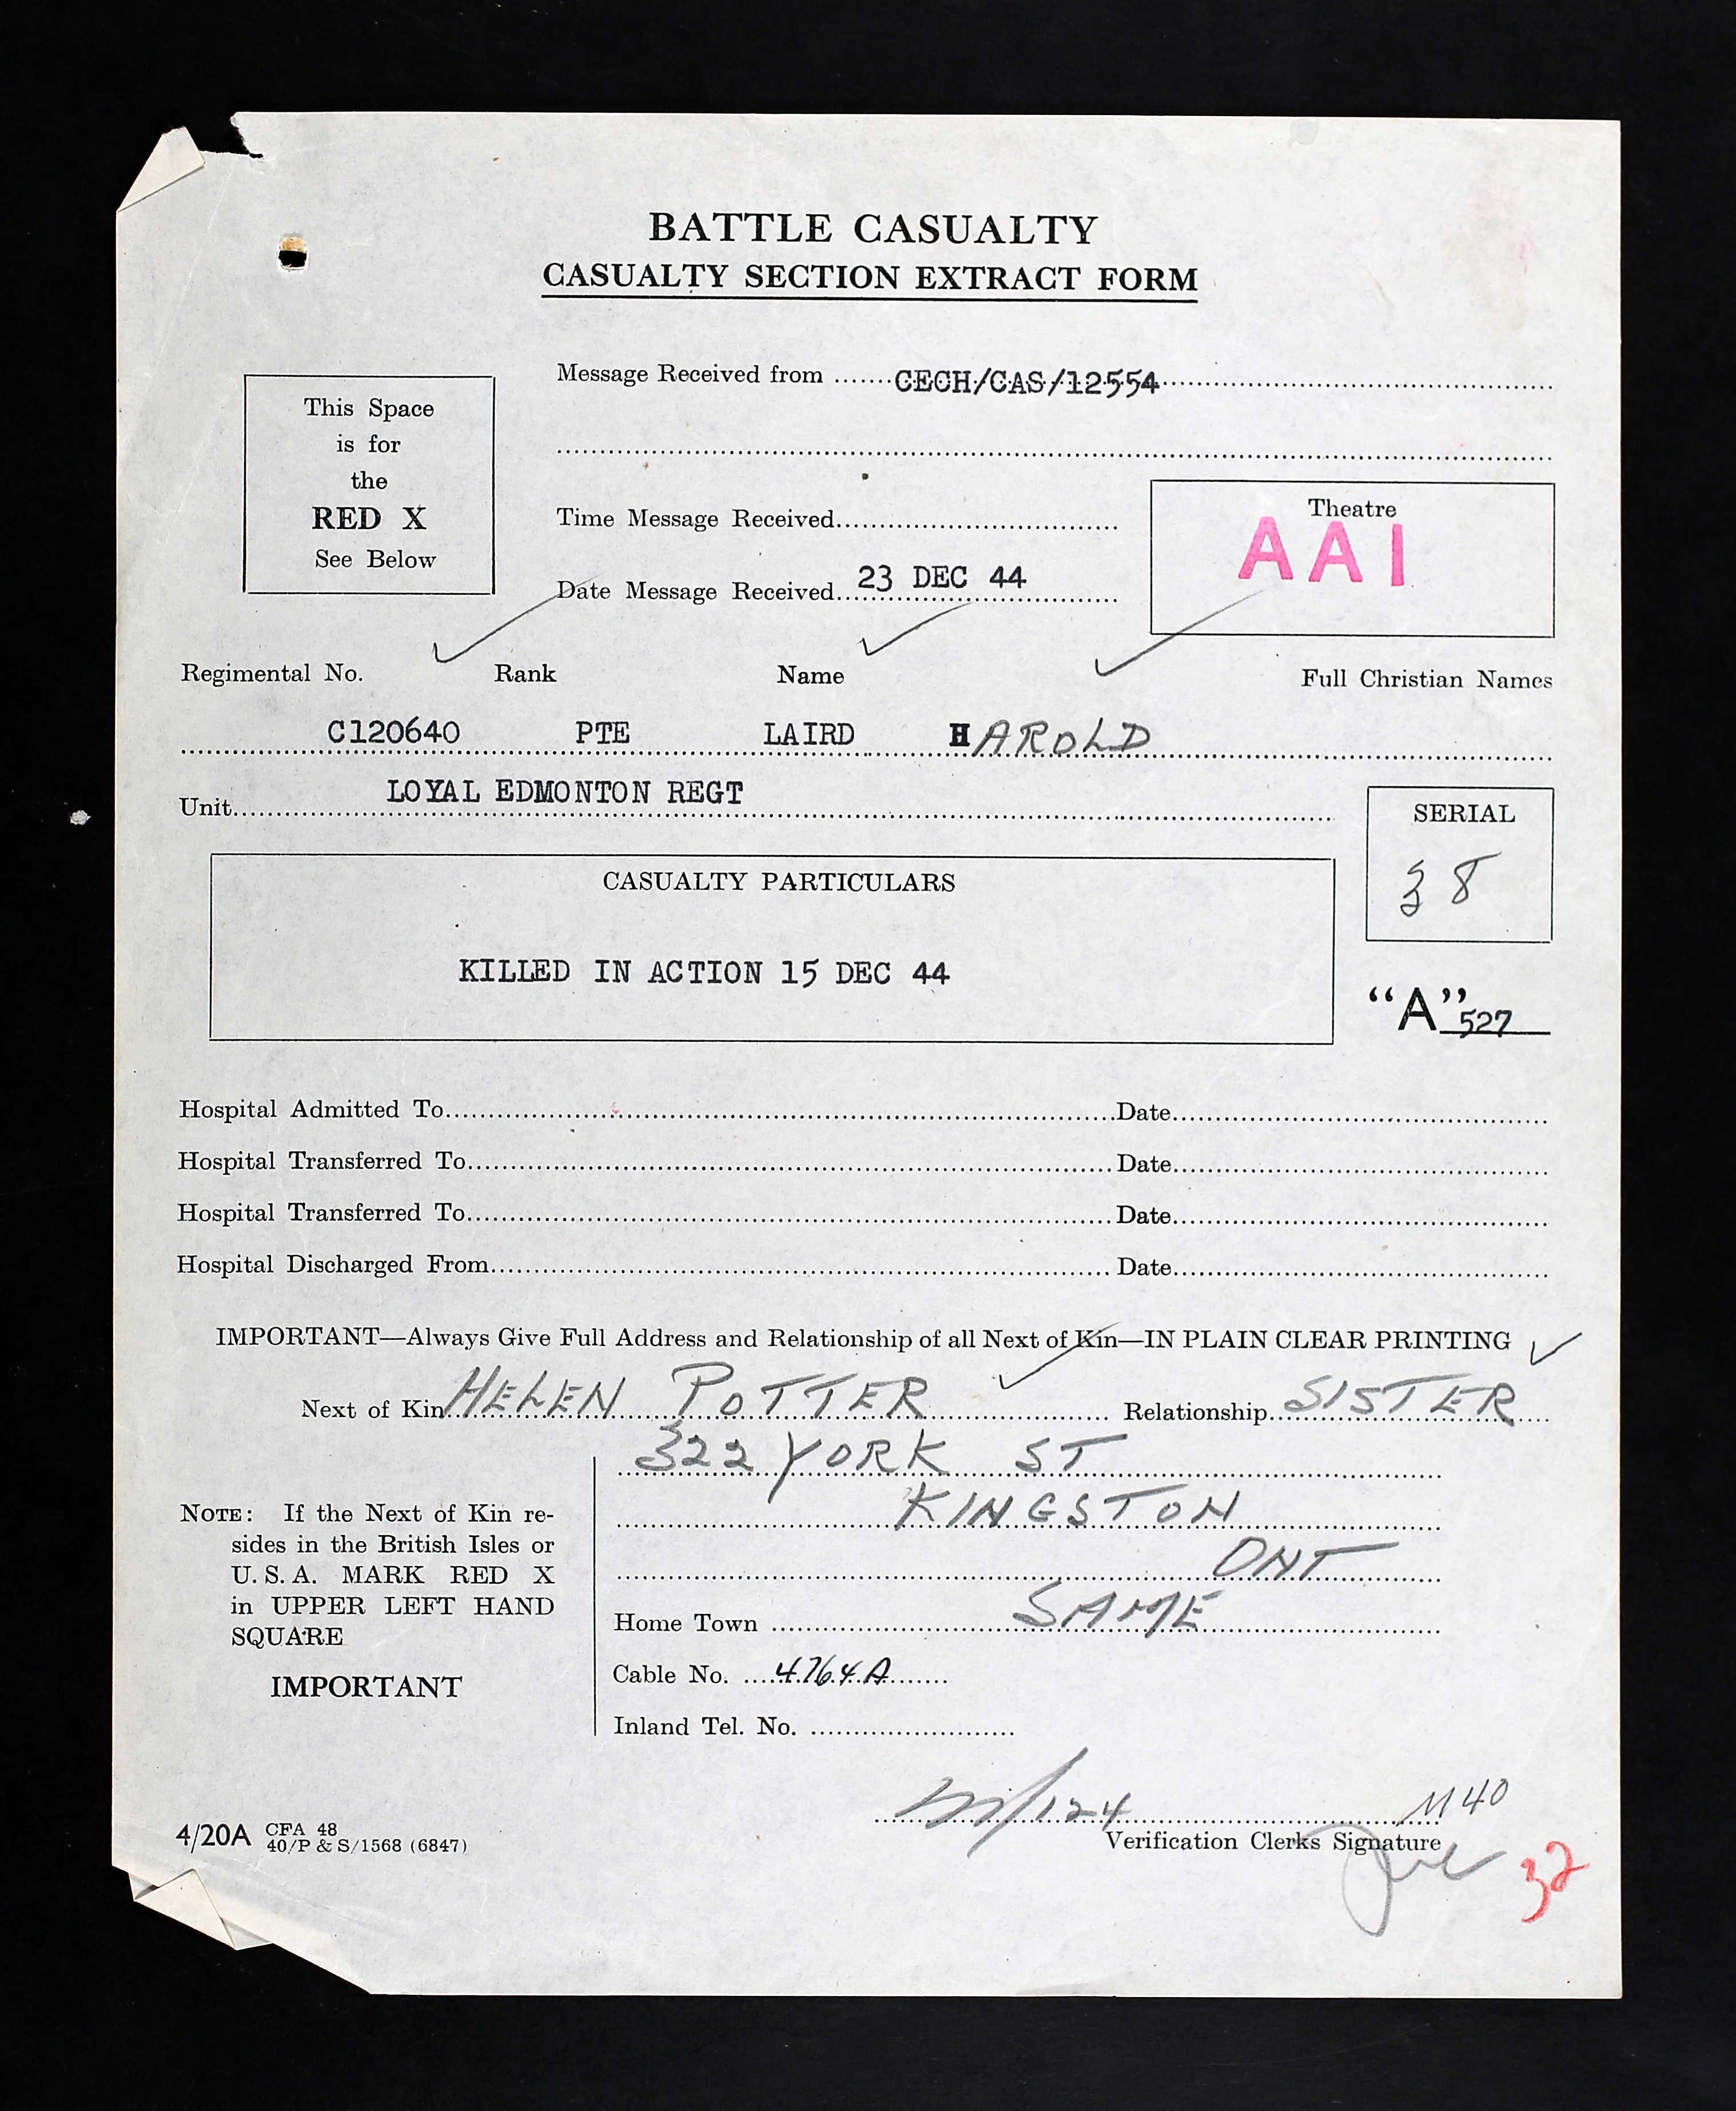 BATTLE CASUALTY
CASUALTY SECTION EXTRACT FORM
Message Received from .......CECH/CAS/12554
This Space
is for
the
RED X
See Below
Time Message Received
Date Message Received 23 DEC 44
Theatre
AAI
Regimental No. Rank Name Full Christian Names
C120640 PTE LAIRD HAROLD
Unit LOYAL EDMONTON REGT
SERIAL
38
CASUALTY PARTICULARS
KILLED IN ACTION 15 DEC 44
“A” 527
Hospital Admitted To Date
Hospital Transferred To Date
Hospital Transferred To Date
Hospital Discharged From Date
IMPORTANT—Always Give Full Address and Relationship of all Next of Kin—IN PLAIN CLEAR PRINTING
Next of Kin HELEN POTTER Relationship SISTER
322 YORK ST
KINGSTON
ONT
Home Town SAME
Cable No. 4764A
Inland Tel. No.
NOTE: If the Next of Kin re-
sides in the British Isles or
U.S.A. MARK RED X
in UPPER LEFT HAND
SQUARE
IMPORTANT
/124 M40
Verification Clerks Signature
32
4/20A CFA 48
40/P & S/1568 (6847)